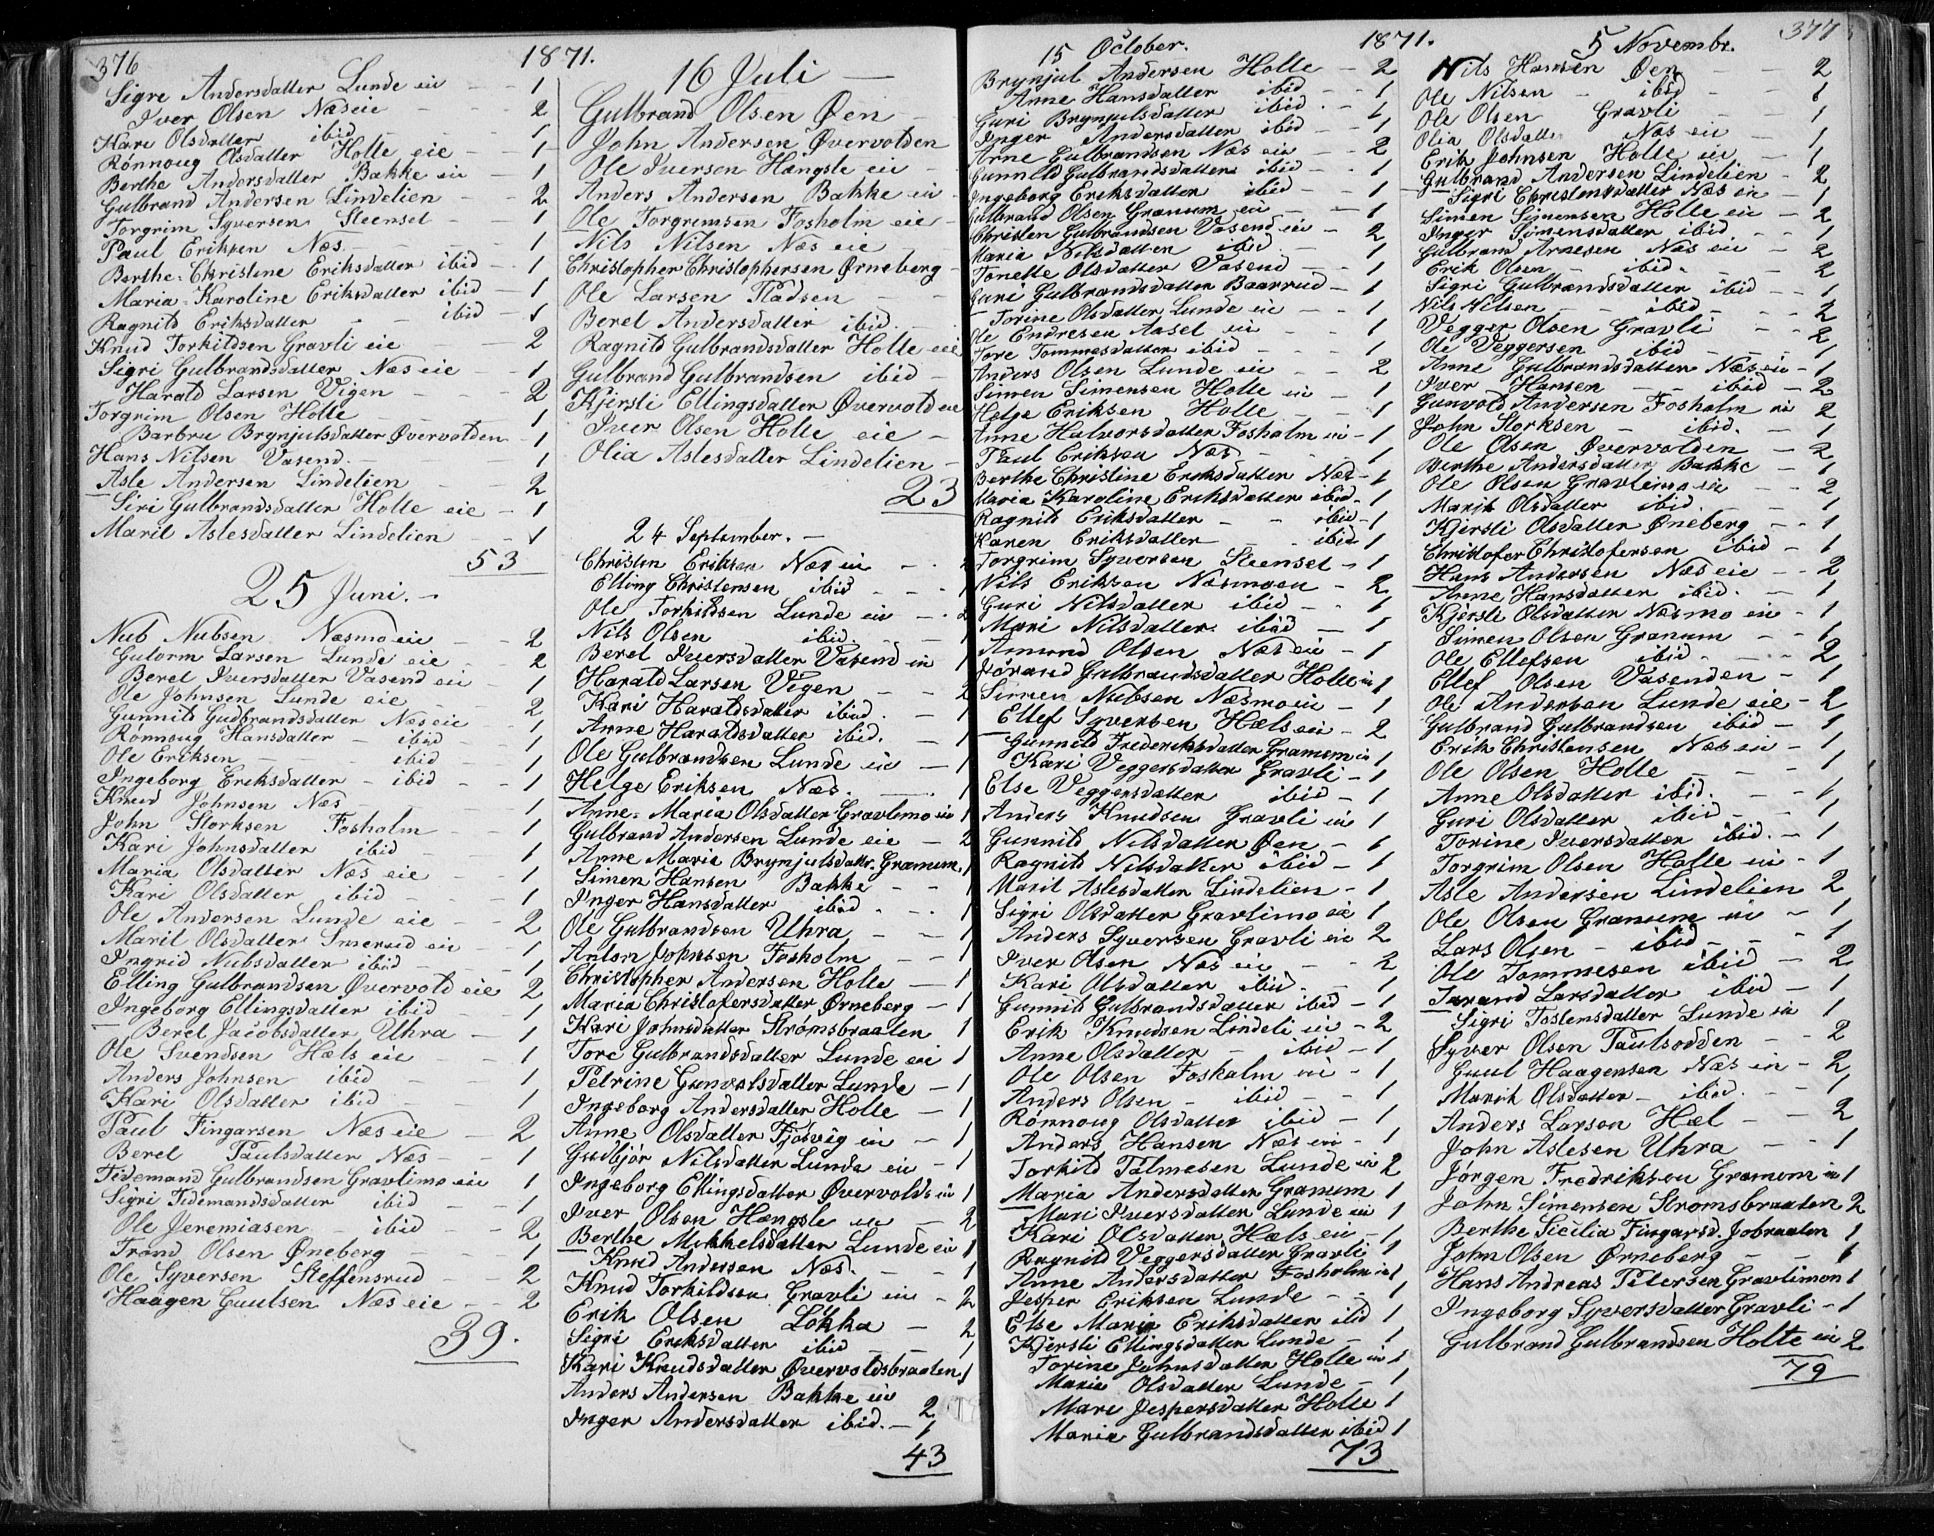 376
1871.
Sigre Andersdatter Lunde eie - - 1
Iver Olsen Næseie - - 2
Kari Olsdatter ibid - - 1
Rönnoug Olsdatter Holte eie - 1
Berthe Andersdatter Bakke eie - 1
Gulbrand Andersen Lindelien - 2
Torgrim Syversen Steenset - - 1
Paul Eriksen Næs. - - 1
Berthe-Christine Eriksdatter ibid - 1
Maria-Karoline Eriksdatter ibid - 1
Ragnild Eriksdatter - - ibid - 1
Knud Torkildsen Gravli eie - - 2
Sigri Gulbrandsdatter Næseie - - 1
Harald Larsen Vigen - - 2
Torgrim Olsen Holte - - 1
Barbru Brynjulsdatter Øvervolden - 1
Hans Nilsen Vasend. - - 1
Asle Andersen Lindelien - - 2
Siri Gulbrandsdatter Holte eie - 1
Marit Aslesdatter Lindelien - - 1
53
25 Juni. -
Nub Nubsen Næsmoeie - - 2
Gutorm Larsen Lunde eie - 2
Beret Iversdatter Vasend eie - 1
Ole Johnsen Lunde eie - - 2
Gunnild Gudbrandsdatter Næseie 1
Rönnoug Hansdatter - ibid - 1
Ole Eriksen - ibid 1
Ingeborg Eriksdatter - ibid - - 1
Knud Johnsen Næs - - 1
John Storksen Fosholm - - 1
Kari Johnsdatter ibid - 1
Maria Olsdatter Næs eie - - 1
Kari Olsdatter ibid - - 1
Ole Andersen Lunde eie - - 2
Marit Olsdatter Smerud eie - - 1
Ingrid Nubsdatter ibid - - 1
Elling Gulbrandsen Øvervold eie 2
Ingeborg Ellingsdatter ibid - 1
Beret Jacobsdatter Uhra - - 1
Ole Svendsen Hæls eie - - 1
Anders Johnsen ibid - - 1
Kari Olsdatter ibid - - 1
Paul Fingarsen Næseie - 2
Beret Paulsdatter Næs - - 1
Tidemand Gulbrandsen Gravlimo eie 1
Sigri Tidemandsdatter ibid - - 1
Ole Jeremiasen - ibid - - 2
Trond Olsen Øneberg - - 1
Ole Syversen Steffensrud - - 2
Haagen Guulsen Næseie - - 2
39.
16 Juli -
Gulbrand Olsen Øen -
John Andersen Øvervolden
Ole Iversen Hængsle eie -
Anders Andersen Bakke eie -
Ole Torgrimsen Fosholm eie -
Nils Nilsen Næs eie
Christopher Christophersen Ørneberg -
Ole Larsen Pladsen - -
Beret Andersdatter ibid. -
Ragnild Gulbrandsdatter Holte eie
Gulbrand Gulbrandsen ibid -
Kjersti Ellingsdatter Øvervold eie
Iver Olsen Holte eie -
Olia Aslesdatter Lindelien -
23
24 September. -
Christen Eriksen Næs eie - -
Elling Christensen ibid - - 1
Ole Torkildsen Lunde eie - - 2
Nils Olsen ibid. - - 1
Beret Iversdatter Vasend eie 1
Harald Larsen Vigen - - 2
Kari Haraldsdatter ibid. - 1
Anne Haraldsdatter ibid. - 1
Ole Gulbrandsen Lunde eie - 1
Helge Eriksen Næs. - 1
Anne-Maria Olsdatter Gravlimo eie 1
Gulbrand Andersen Lunde eie - 2
Anne Marie Brynjulsdattr. Granum. 1
Simen Hansen Bakke - - 1
Inger Hansdatter ibid - - 1
Ole Gulbrandsen Uhra - - 1
Anton Johnsen Fosholm - - 1
Christopher Andersen Holte - 1
Maria Christofersdatter Ørneberg - 1
Kari Johnsdatter Strømsbraaten 1
Tore Gulbrandsdatter Lunde eie 1
Petrine Gunvolsdatter Lunde - 1
Ingeborg Andersdatter Holte - 1
Anne Olsdatter Tjosvig eie - 1
Gudbjör Nilsdatter Lunde eie - 1
Ingeborg Ellingsdatter Øvervolds eie 1
Iver Olsen Hængsle eie - 2
Berthe Mikkelsdatter Lunde eie 1
Knud Andersen Næs. - - 1
Knud Torkildsen Gravli eie - 2
Erik Olsen Lökka - 2
Sigri Eriksdatter ibid - - 1
Kari Knudsdatter Øvervoldsbraaten 1
Anders Andersen Bakke eie 2
Inger Andersdatter ibid. - 1
43
15 October.
1871.
Brynjul Andersen Holte - 2
Anne Hansdatter ibid - - 1
Guri Brynjulsdatter ibid. - 1
Inger Andersdatter ibid - - 1
Arne Gulbrandsen Næs eie - - 2
Gunnild Gulbrandsdatter ibid - 1
Ingeborg Eriksdatter ibid - - 1
Gulbrand Olsen Granum eie - - 1
Christen Gulbrandsen Vasend eie - 2
Maria Nilsdatter ibid. - - 1
Tonette Olsdatter Vasend - - 1
Guri Gulbrandsdatter Baarrud - 1
Torine Olsdatter Lunde eie - - 1
Ole Endresen Aaset eie - - 1
Tore Tommesdatter ibid - - 1
Anders Olsen Lunde eie - - 2
Simen Simensen Holte eie - 1
Helge Eriksen Holte - - 1
Anne Halvorsdatter Fosholm eie - 1
Paul Eriksen Næs - - - 1
Berthe Christine Eriksdatter Næs - 1
Maria Karoline Eriksdatter ibid. 1
Ragnild Eriksdatter - - ibid - 1
Karen Eriksdatter - - ibid 1
Torgrim Syversen Steenset - 1
Nils Eriksen Næsmoen - 2
Guri Nilsdatter ibid - - 1
Mari Nilsdatter. ibid - 1
Amund Olsen Næs eie - 1
Jörand Gulbrandsdatter Holte eie 1
Simen Nubsen Næsmoeie - 1
Ellef Syversen Hæls eie - 2
Gunnild Frederiksdatter Granum eie 1
Kari Veggersdatter Gravli - 1
Else Veggersdatter ibid - 1
Anders Knudsen Gravli eie 1
Gunnild Nilsdatter Øen - 1
Ragnild Nilsdatter ibid - 1
Marit Aslesdatter Lindelien - 1
Sigri Olsdatter Gravlimo eie 1
Anders Syversen Gravli eie 2
Iver Olsen Næs eie - - 2
Kari Olsdatter ibid. - 1
Gunnild Gulbrandsdatter ibid - 1
Erik Knudsen Lindeli eie - 2
Anne Olsdatter - ibid - 1
Ole Olsen Fosholm eie - 1
Anders Olsen - ibid - - 1
Rönnoug Olsdatter ibid - 1
Anders Hansen Næs eie - 1
Torkild Palmesen Lunde eie 2
Maria Andersdatter Granum 1
Mari Iversdatter Lunde eie 1
Kari Olsdatter Hæls eie - 1
Ragnild Veggersdatter Gravli 1
Anne Andersdatter Fosholm eie 1
Jesper Eriksen Lunde - - 1
Else Maria Eriksdatter ibid 1
Kjersti Ellingsdatter Lunde - 1
Torine Johnsdatter Holte eie 1
Maria Olsdatter Lunde - 1
Mari Jespersdatter Holte 1
Maria Gulbrandsdatter ibid 1
73
5 Novembr.
377
Nils Hansen Øen - - 2
Ole Nilsen - ibid - - 1
Ole Olsen Gravli - - 1
Olia Olsdatter Næs eie - 1
Erik Johnsen Holte eie - 1
Gulbrand Andersen Lindelien - 2
Sigri Christensdatter Næs eie 1
Simen Simensen Holte eie - 2
Inger Simensdatter ibid - - 1
Gulbram Arnesen Næs eie - 2
Erik Olsen - ibid. - - 2
Sigri Gulbrandsdatter ibid - 1
Nils Nilsen - - ibid. - - 2
Vegger Olsen Gravli - - 2
Ole Veggersen ibid - - 1
Anne Gulbrandsdatter Næs eie - 1
Iver Hansen - - ibid - 2
Gunvold Andersen Fosholm eie 2
John Storksen - ibid. - 1
Ole Olsen Øvervolden - 2
Berthe Andersdatter Bakke - 1
Ole Olsen Gravlimo eie - 2
Marit Olsdatter ibid. - - 1
Kjersti Olsdatter Øneberg - - 1
Christofer Christofersen ibid - 1
Hans Andersen Næs eie - - 2
Anne Hansdatter ibid. - - 1
Kjersti Olsdatter Næsmo eie - 1
Simen Olsen Granum - - 1
Ole Ellefsen ibid - - - 2
Ellef Olsen Vasenden - 1
Ole Andersen Lunde eie - 2
Gulbrand Gulbrandsen ibid - 1
Erik Christensen Næs eie - 1
Ole Olsen Holte - - - 1
Anne Olsdatter ibid. - - 1
Guri Olsdatter ibid - - 1
Torine Iversdatter ibid. - 1
Torgrim Olsen Holte eie - 1
Asle Andersen Lindelien 2
Ole Olsen Granum eie - 1
Lars Olsen - ibid - - 1
Ole Tommesen ibid - 2
Jørand Larsdatter ibid - 1
Sigri Tostensdatter Lunde eie 1
Syver Olsen Paulsodden - - 2
Guul Haagensen Næs eie - 2
Marit Olsdatter - ibid. - 1
Anders Larsen Hæl - - 2
John Aslesen Uhra - - 1
Jørgen Fredriksen Granum eie 1
John Simensen Strømsbraaten 2
Berthe Sicilia Fingarsd. Jobraaten 1
John Olsen Ørneberg - - 1
Hans Andreas Petersen Gravlimoen 1
Ingeborg Syversdatter Gravli - 1
Gulbrand Gulbrandsen Holte eie 2
79